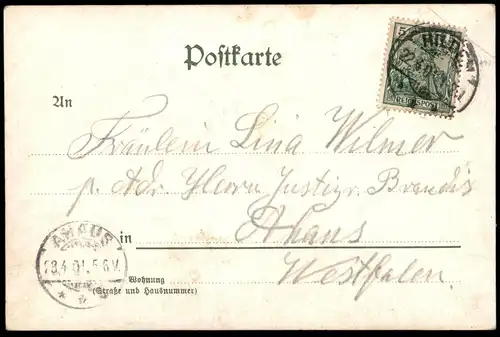 Postkarte
5
REICHSPOST
HILDEN
An
Fräulein Lina Wilmer
p. Adr. Herrn Justizr. Brandis
in Ahaus
Westfalen.
AHAUS
23.4.01. 5-6 V.
Wohnung
(Straße und Hausnummer)